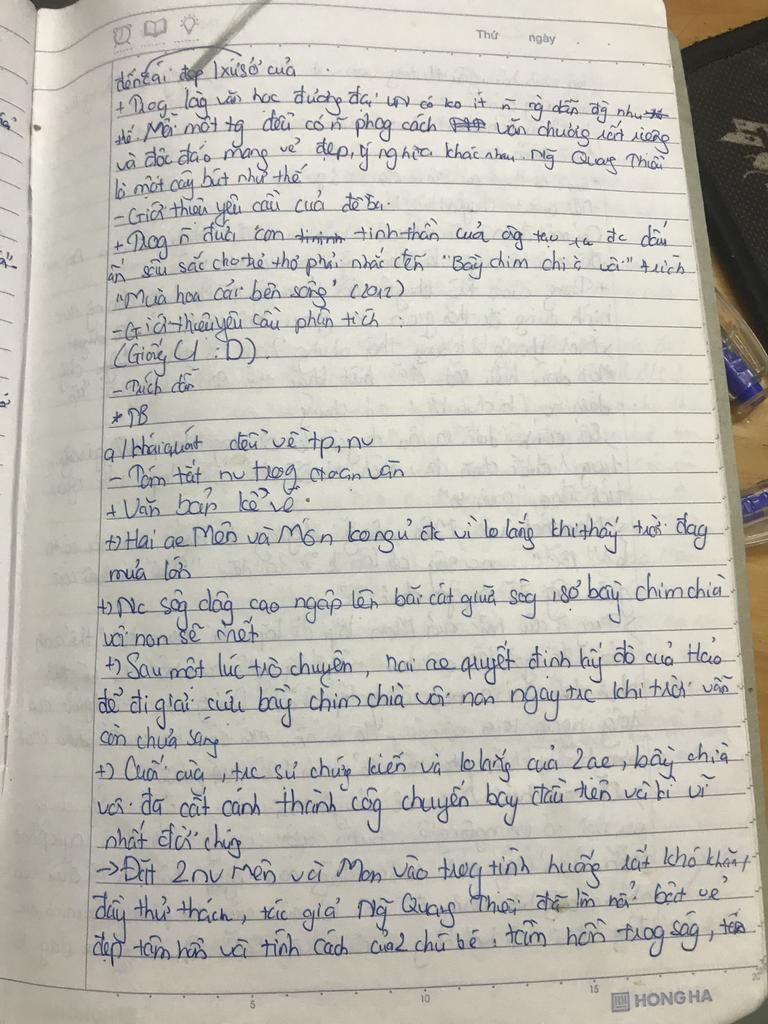 Thứ ngày
đến cái đẹp / xứ sở của .
+ Trog làg văn học đươg đại VN có ko ít n ng dẫn đg như
thế. Mỗi một tg đều có n phog cách văn chươg rất riêng
và độc đáo mang vẻ đẹp, ý nghĩa khác nhau. Ng Quag Thiều
là một cây bút như thế
- Giới thiệu yêu cầu của đề bài.
+ Trog n đứa con tinh thần của ôg tạo ra đc dấu
ấn sâu sắc cho thế thơ phải nhắc đến "Bầy chim chìa vôi" trích
"Mùa hoa cải bên sông" (2012)
- Giới thiệu yêu cầu phân tích .
(Giốg U : D).
- Trích dẫn
* TB
a/ khái quát đều về tp, nv
- Tóm tắt nv trog đoạn văn
+ Văn bản kể về .
+) Hai ae Mên và Món ko ngủ đc vì lo lắng khi thấy trời đag
mưa lớn
+) Nc sôg dâg cao ngập lên bãi cát giữa sôg, sợ bầy chim chìa
vôi non sẽ chết
+) Sau một lúc trò chuyện, hai ae quyết định lấy đò của Hảo
để đi giải cứu bầy chim chìa vôi non ngay trc khi trời vẫn
còn chưa sáng
+) Cuối cùg, trc sự chứg kiến và lo lắg của 2 ae, bầy chìa
vôi đã cất cánh thành côg chuyến bay đầu tiên và kì vĩ
nhất đời chúg
→ Đặt 2 nv Mên và Mon vào trog tình huốg rất khó khăn,
đầy thử thách, tác giả Ng Quag Thiều đã làm nổi bật vẻ
đẹp tâm hồn và tính cách của 2 chú bé: tâm hồn trog ság,
5 10 15
HONG HA